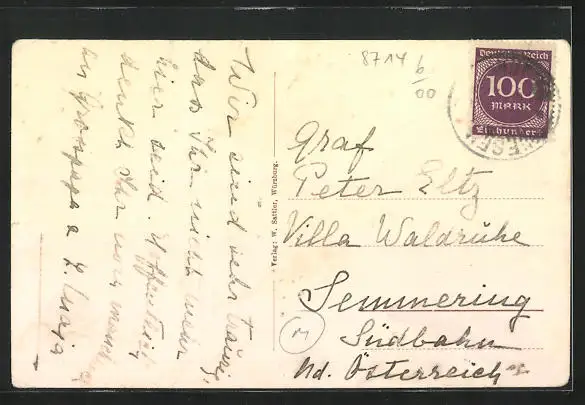 Wir sind sehr traurig,
dass Ihr nicht mehr
hier seid. Hoffentlich
denkt Ihr noch manchmal
an Grosspapa u
Verlag: W. Sattler, Würzburg.
8714
b
00
Deutsches Reich
100
MARK
Einhundert
Graf
Peter Eltz
Villa Waldruhe
Semmering
Südbahn
M
Nd. Österreich